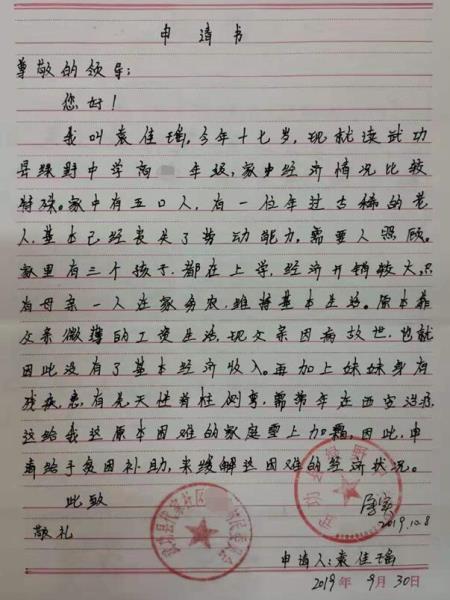 申请书
尊敬的领导:
您好!
我叫袁佳瑜,今年十七岁,现就读武功
县绿野中学高 年级,家中经济情况比较
特殊。家中有五口人,有一位年过古稀的老
人,基本已经丧失了劳动能力,需要人照顾。
家里有三个孩子,都在上学,经济开销较大。只
有母亲一人在家务农,维持基本生活。原本靠
父亲微薄的工资生活,现父亲因病故世,也就
因此没有了基本经济收入。再加上妹妹身有
残疾,患有先天性脊柱侧弯,需常年在西安治疗
这给我这原本困难的家庭雪上加霜,因此,申
请给予贫困补助,来缓解这困难的经济状况。
此致
敬礼
2019.10.8
申请人:袁佳瑜
2019年 9月 30日